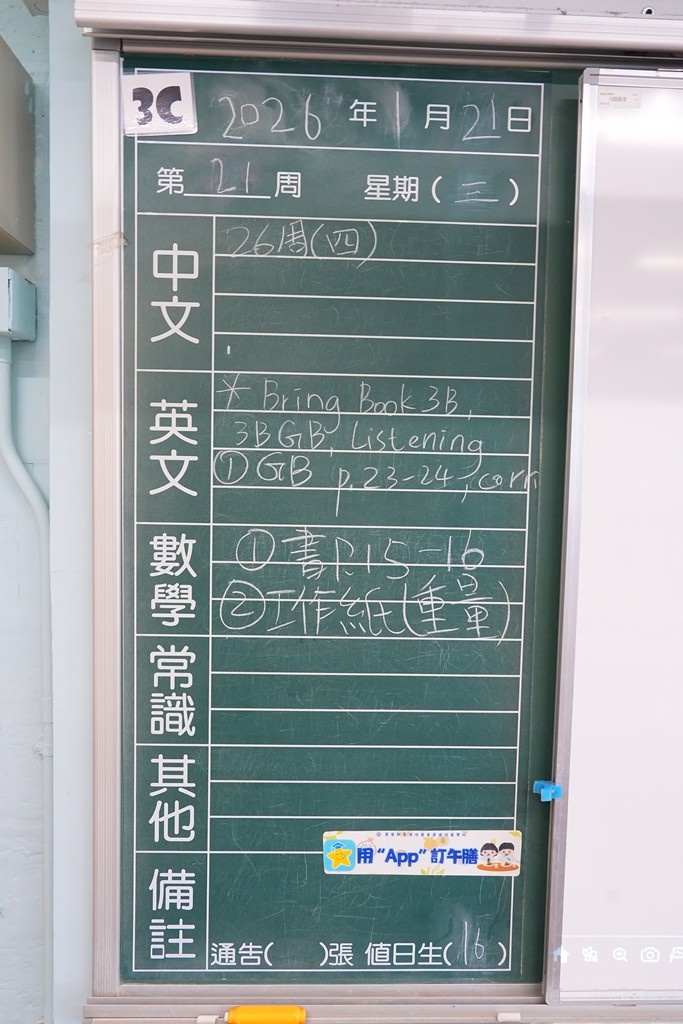 3C
2026年1月21日
第21周 星期(三)
中文
26周(四)
英文
* Bring Book 3B,
3B GB, Listening
① GB p.23-24, corr
數學
① 書P.15-16
② 工作紙(重量)
常識
其他
用“App”訂午膳
備註
通告( )張 值日生(16)